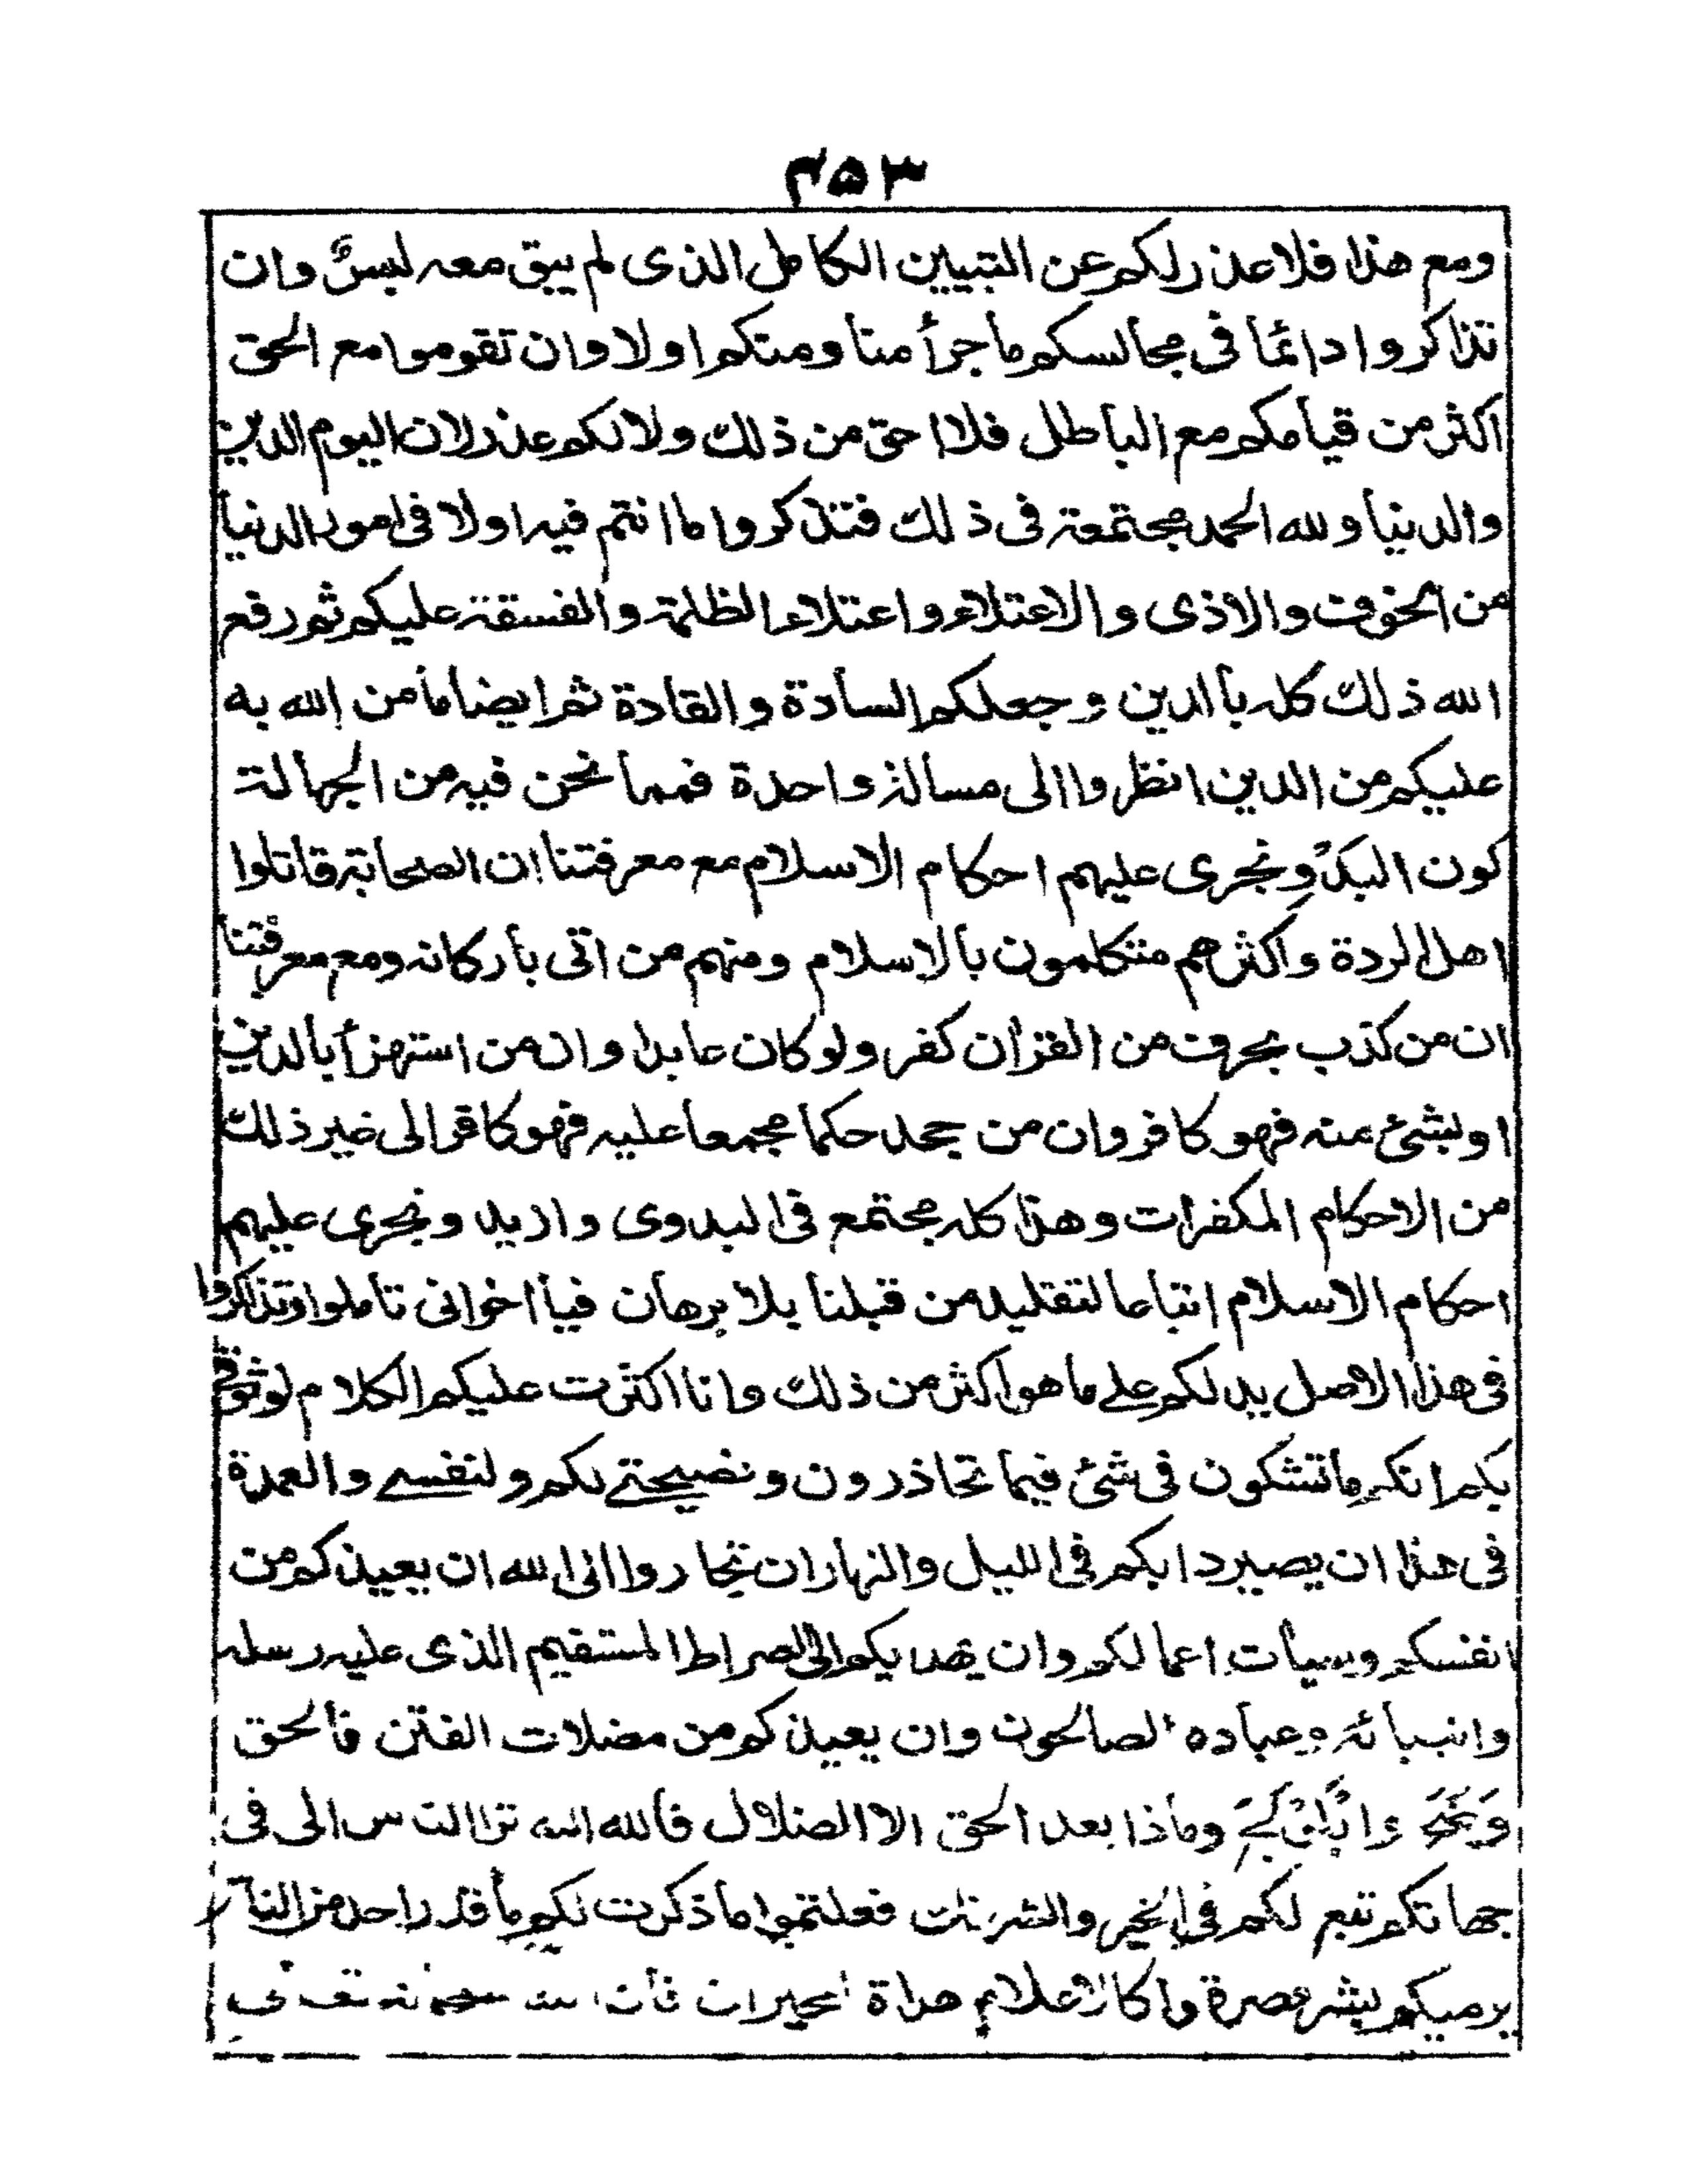 ۴۵۳
ومع هذا فلا عذر لكم عن التبيين الكامل الذى لم يبق معه لبسٌ وان
تذاكروا دائما فى مجالسكم ما جرأ منا ومنكم اولا وان تقوموا مع الحق
اكثر من قيامكم مع الباطل فلا احق من ذلك ولا لكم عذر لان اليوم الدين
والدنيا ولله الحمد مجتمعة فى ذلك فتذكروا ما انتم فيه اولا فى امور الدنيا
من الخوف والاذى والاعتلاء واعتلاء الظلمة والفسقة عليكم ثم رفع
الله ذلك كله بالدين وجعلكم السادة والقادة ثم ايضا ما من الله به
عليكم من الدين انظروا الى مسألة واحدة فمما نحن فيه من الجهالة
كون البدو نجرى عليهم احكام الاسلام مع معرفتنا ان الصحابة قاتلوا
اهل الردة واكثرهم متكلمون بالاسلام ومنهم من اتى باركانه ومع معرفتنا
ان من كذب بحرف من القرأن كفر ولو كان عابدا وان من استهزأ بالدين
او بشئ منه فهو كافر وان من جحد حكما مجمعا عليه فهو كافر الى غير ذلك
من الاحكام المكفرات وهذا كله مجتمع فى البدوى وازيد ونجرى عليهم
احكام الاسلام اتباعا لتقليد من قبلنا بلا برهان فيا اخوانى تأملوا وتذاكروا
فى هذا الاصل يدلكم على ما هو اكثر من ذلك وانا اكثرت عليكم الكلام لوثوقى
بكم انكم ما تشكون فى شئ فيما تحاذرون ونصيحتى لكم ولنفسى والعمدة
فى هذا ان يصير دابكم فى الليل والنهار ان تجاروا الى الله ان يعيذكم من
انفسكم وسيأت اعمالكم وان يهديكم الى الصراط المستقيم الذى عليه رسله
وانبيائه وعباده الصالحون وان يعيذكم من مضلات الفتن فالحق
وماذا بعد الحق الا الضلال فالله الله ترا الناس الى فى
جهاتكم تبع لكم فى الخير والشر فعلتموا ما ذكرت لكم ما قدر احد من الناس
يرميكم بشر